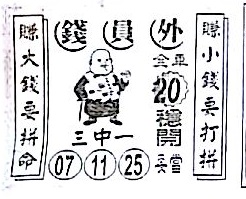 錢員外
賺小錢要打拼
賺大錢要拼命
全車
20
穩開
三中一
07 11 25